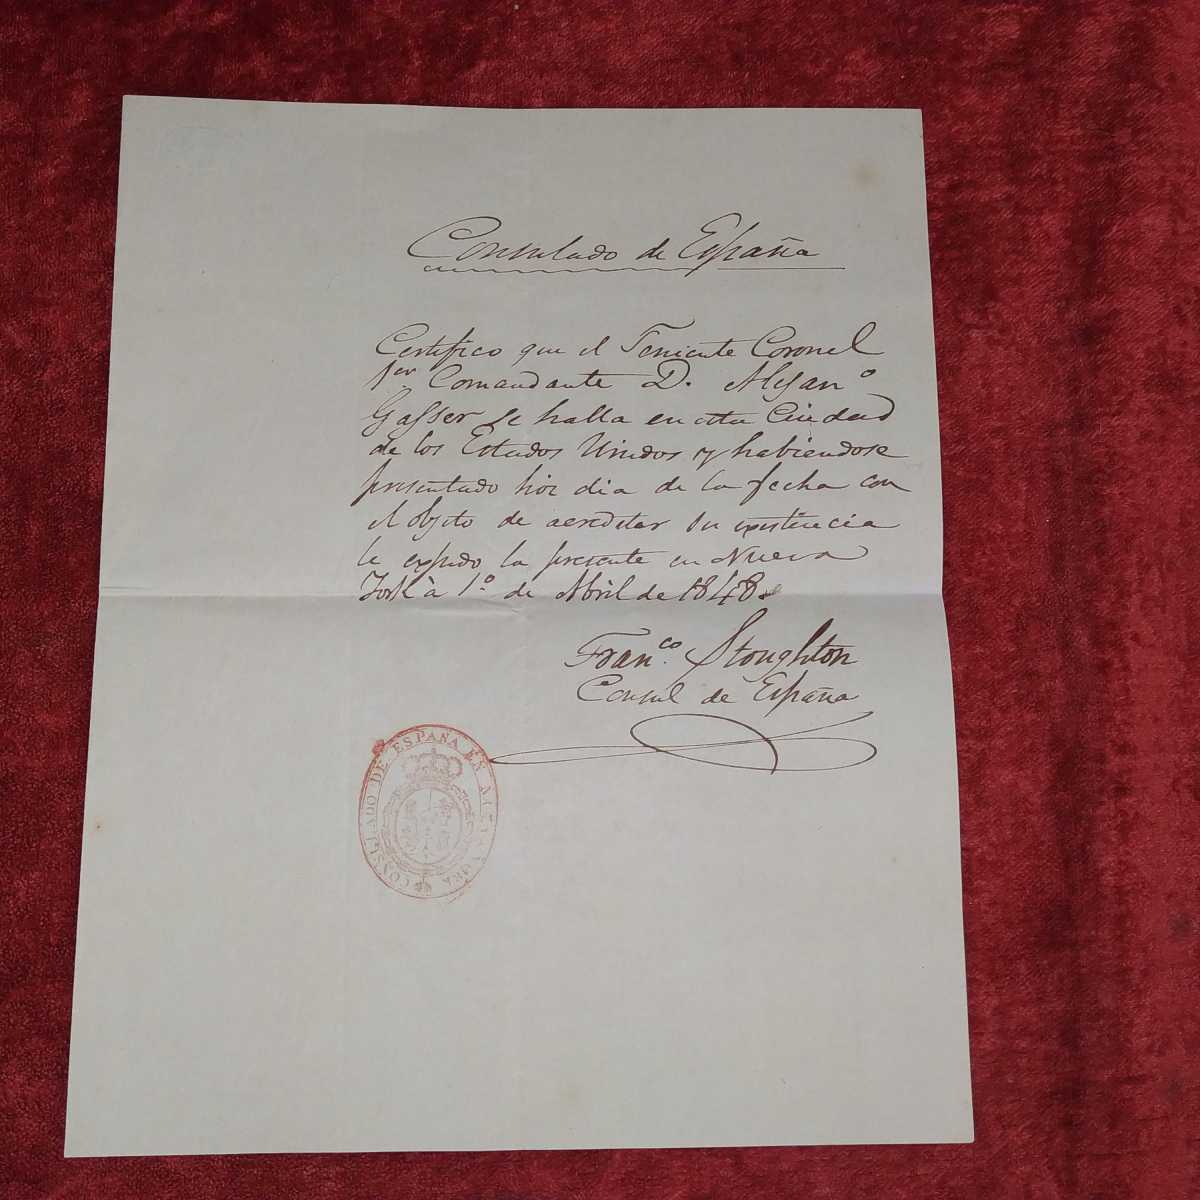 Consulado de España
Certifico que el Teniente Coronel
1er Comandante D. Alejan.º
Gasser se halla en esta Ciudad
de los Estados Unidos y habiendose
presentado hoi dia de la fecha con
el objeto de acreditar su existencia
le espido la presente en Nueva
York à 1.º de Abril de 1848.
Franco. Stoughton
Consul de España
CONSULADO DE ESPAÑA EN NUEVA YORK